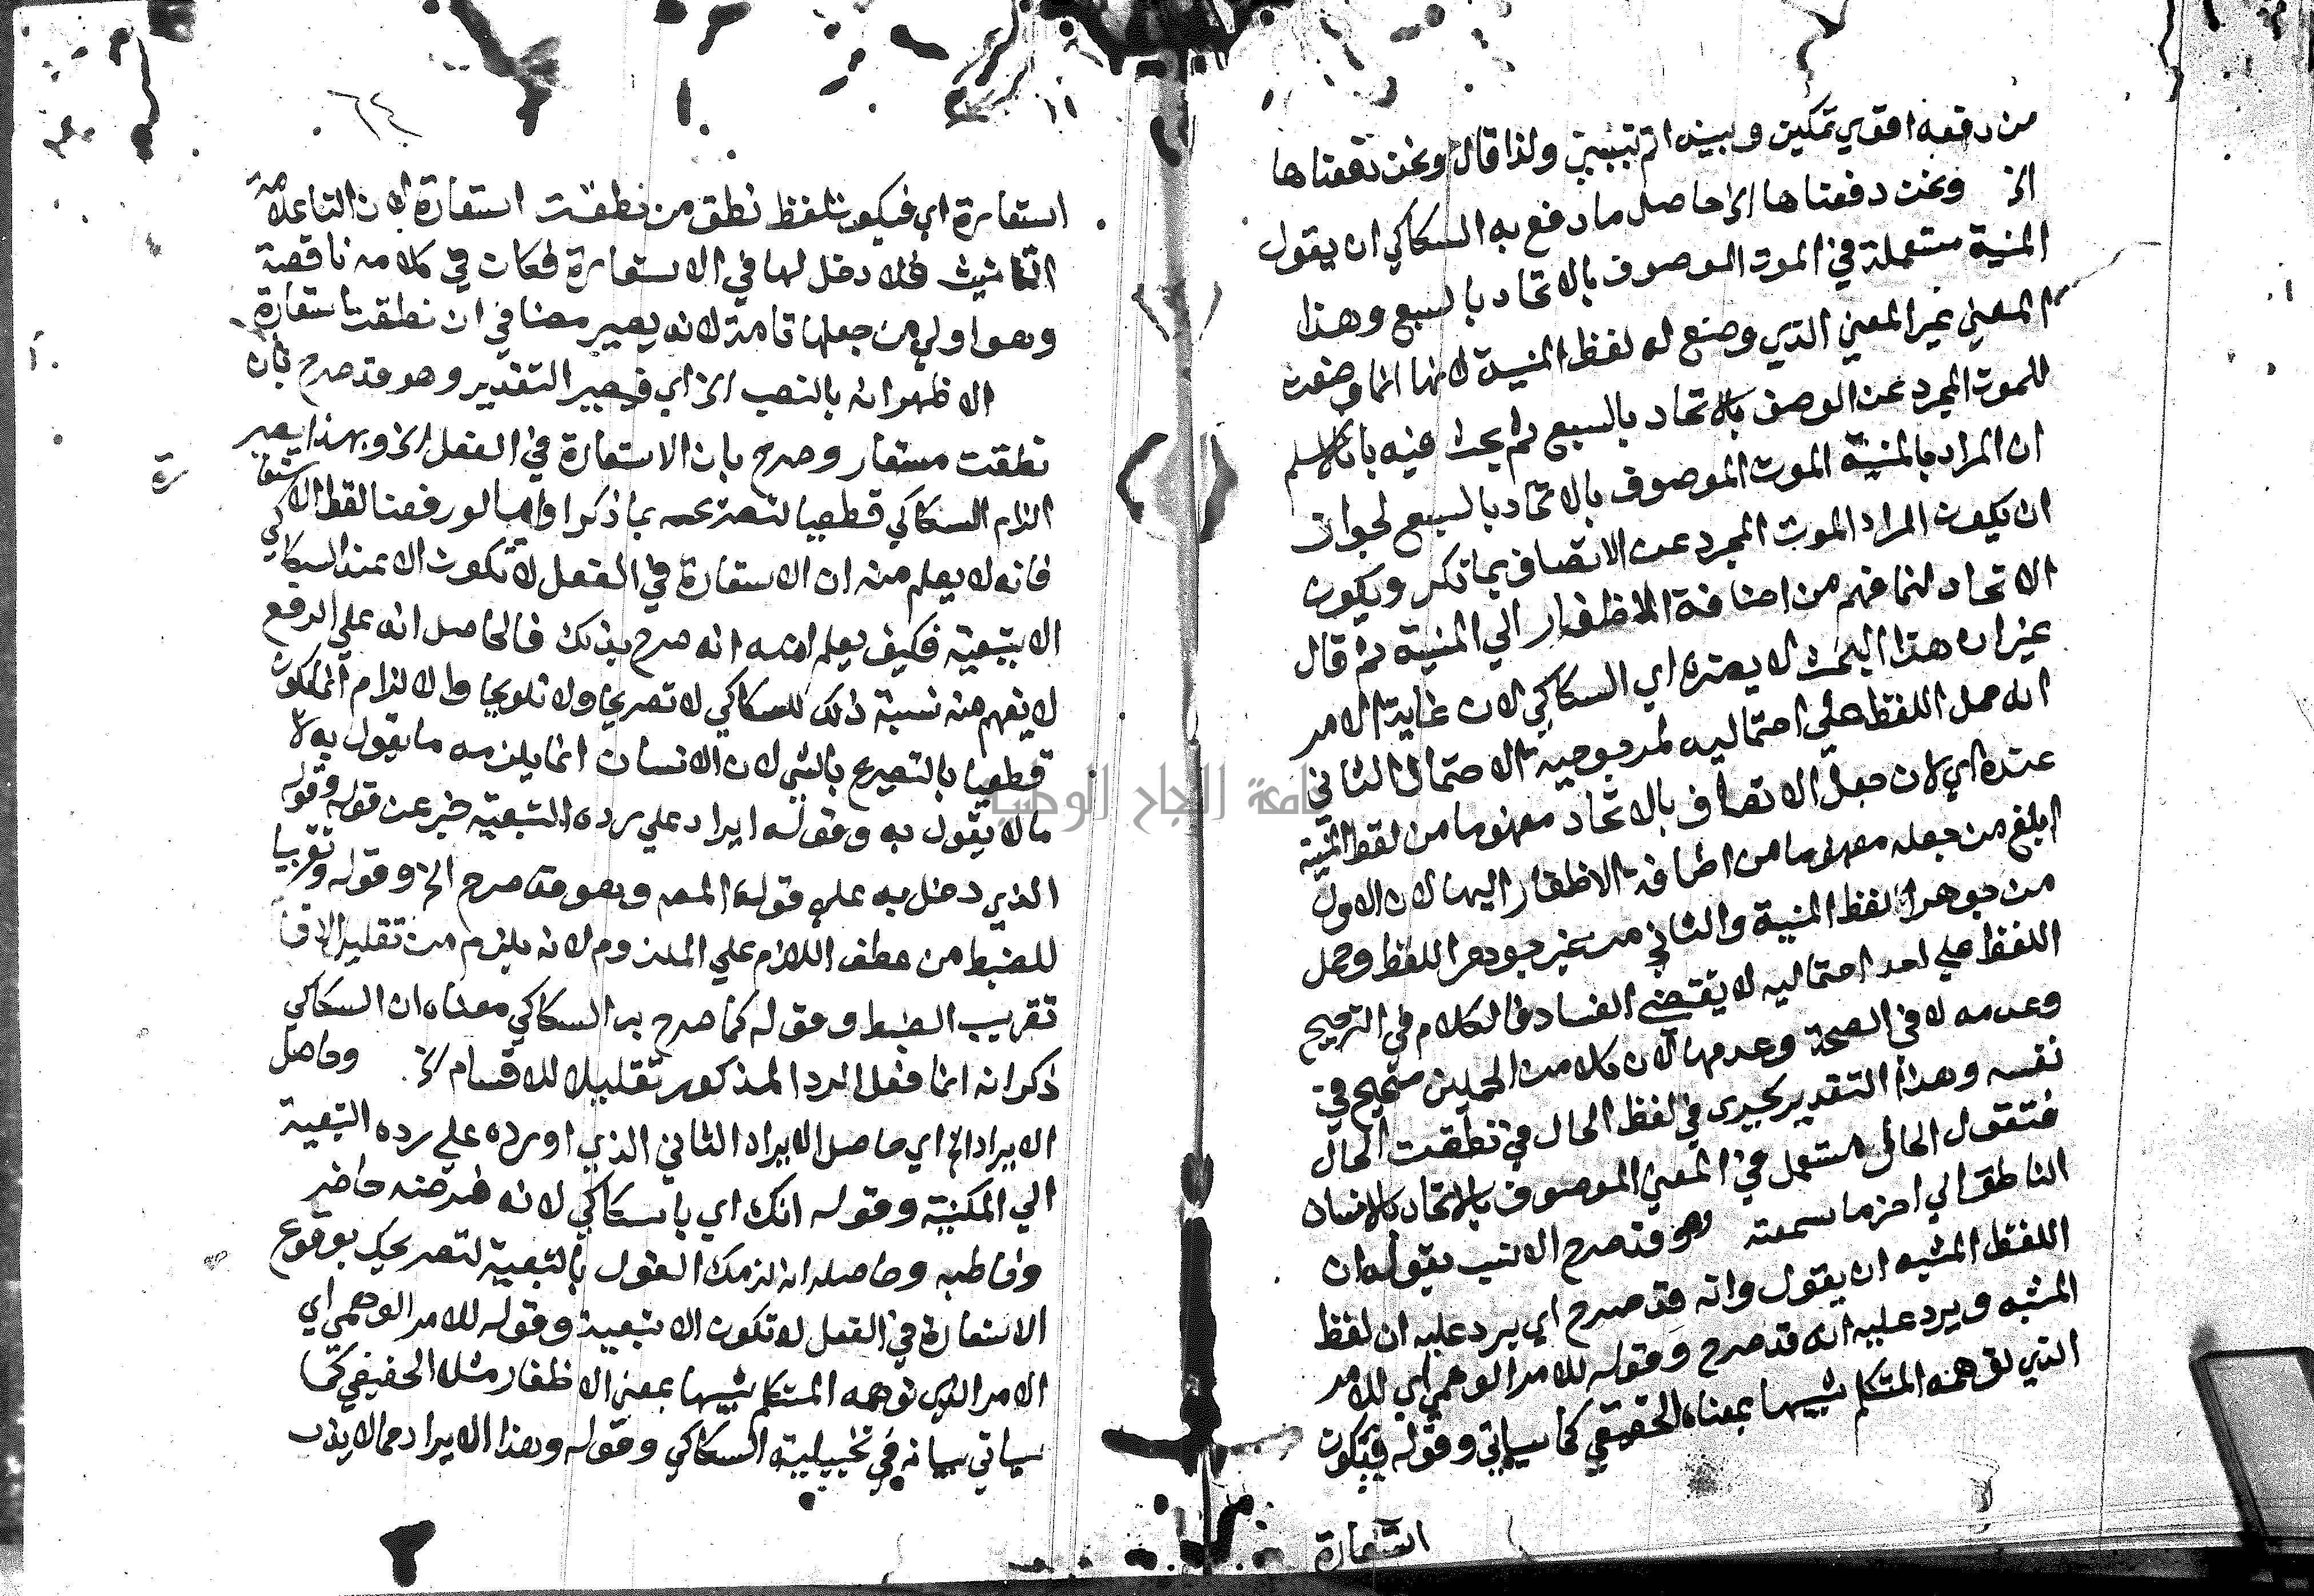 من دفعه اقوي تمكين وبينه اتم تبيين ولذا قال ونحن دفعناها
الخ ونحن دفعناها الخ حاصل ما دفع به السكاكي ان يقول
المنية مستعملة في الموت الموصوف بالاتحاد بالسبع وهذا
المعني غير المعني الذي وضع له لفظ المنية لانها انما وضعت
للموت المجرد عن الوصف بالاتحاد بالسبع ثم بحث فيه بانا لا نسلم
ان المراد بالمنية الموت الموصوف بالاتحاد بالسبع لجواز
ان يكون المراد الموت المجرد عن الاتصاف بما ذكر ويكون
الاتحاد انما فهم من اضافة الاظفار الي المنية ثم قال
غير ان هذا البحث لا يضره اي السكاكي لان غاية الامر
انه حمل اللفظ علي احتماليه لمرجوحية الاحتمال الثاني
عنده اي لان جعل الاتصاف بالاتحاد مفهوما من لفظ المنية
ابلغ من جعله مفهوما من اضافة الاظفار اليها لان الاول
من جوهر لفظ المنية والثاني من غير جوهر اللفظ وحمل
اللفظ علي احد احتماليه لا يقتضي الفساد فالكلام في الترجيح
وعدمه لا في الصحة وعدمها لان كلا من الحملين صحيح في
نفسه وهذا التقدير يجري في لفظ الحال في نطقت الحال
فتقول الحال مستعمل في المعني الموصوف بالاتحاد بالانسان
الناطق الي اخر ما سمعته وهو قد صرح الانسب بقوله ان
اللفظ المشبه ان يقول وانه قد صرح اي يرد عليه ان لفظ
المشبه ويرد عليه انه قد صرح وقوله للامر الوهمي اي للامر
الذي توهمه المتكلم شبيها بمعناه الحقيقي كما سياتي وقوله فيكون
استعارة
٦٤
استعارة اي فيكون لفظ نطق من نطقت استعارة لان التا علامة
التانيث فلا دخل لها في الاستعارة فكان في كلامه ناقصة
وهو اولي من جعلها تامة لانه يصير مضافي ان نطقت استعارة
الاظهر انه بالنصب الخ اي فيصير التقدير وهو قد صرح بان
نطقت مستعار وصرح بان الاستعارة في الفعل الخ وبهذا يصير
الزام السكاكي قطعيا لتصريحه بما ذكر واما لو رفعنا لفظ الاستعا
رة
فانه لا يعلم منه ان الاستعارة في الفعل لا تكون الا عند السكاكي
الا تبعية فكيف يعلم منه انه صرح بذلك فالحاصل انه علي الرفع
لا يفهم منه نسبة ذلك للسكاكي لا تصريحا ولا تلويحا والالزام انما يكون
قطعيا بالتصريح بالشي لان الانسان انما يلزمه ما يقول به لا
ما لا يقول به وقوله ايراد علي رده التبعية خبر عن قوله وقوله
الذي دخل به علي قوله المص وهو قد صرح الخ وقوله وتقريبا
للضبط من عطف اللازم علي الملزوم لانه يلزم من تقليل الاقسام
تقريب الضبط وقوله كما صرح به السكاكي معناه ان السكاكي
ذكر انه انما فعل الرد المذكور تقليلا للاقسام الخ. وحاصل
الايراد الخ اي حاصل الايراد الثاني الذي اورده علي رده التبعية
الي المكنية وقوله انك اي يا سكاكي لانه فرضه حاضر
وخاطبه وحاصله انه لزمك القول بالتبعية لتصريحك بوقوع
الاستعارة في الفعل لا تكون الا تبعية وقوله للامر الوهمي اي
الامر الذي توهمه المتكلم شبيها بمعني الاظفار مثله الحقيقي كما
سياتي بيانه في تخييلية السكاكي وقوله وهذا الايراد مما لا يذب
جامعة النجاح الوطنية